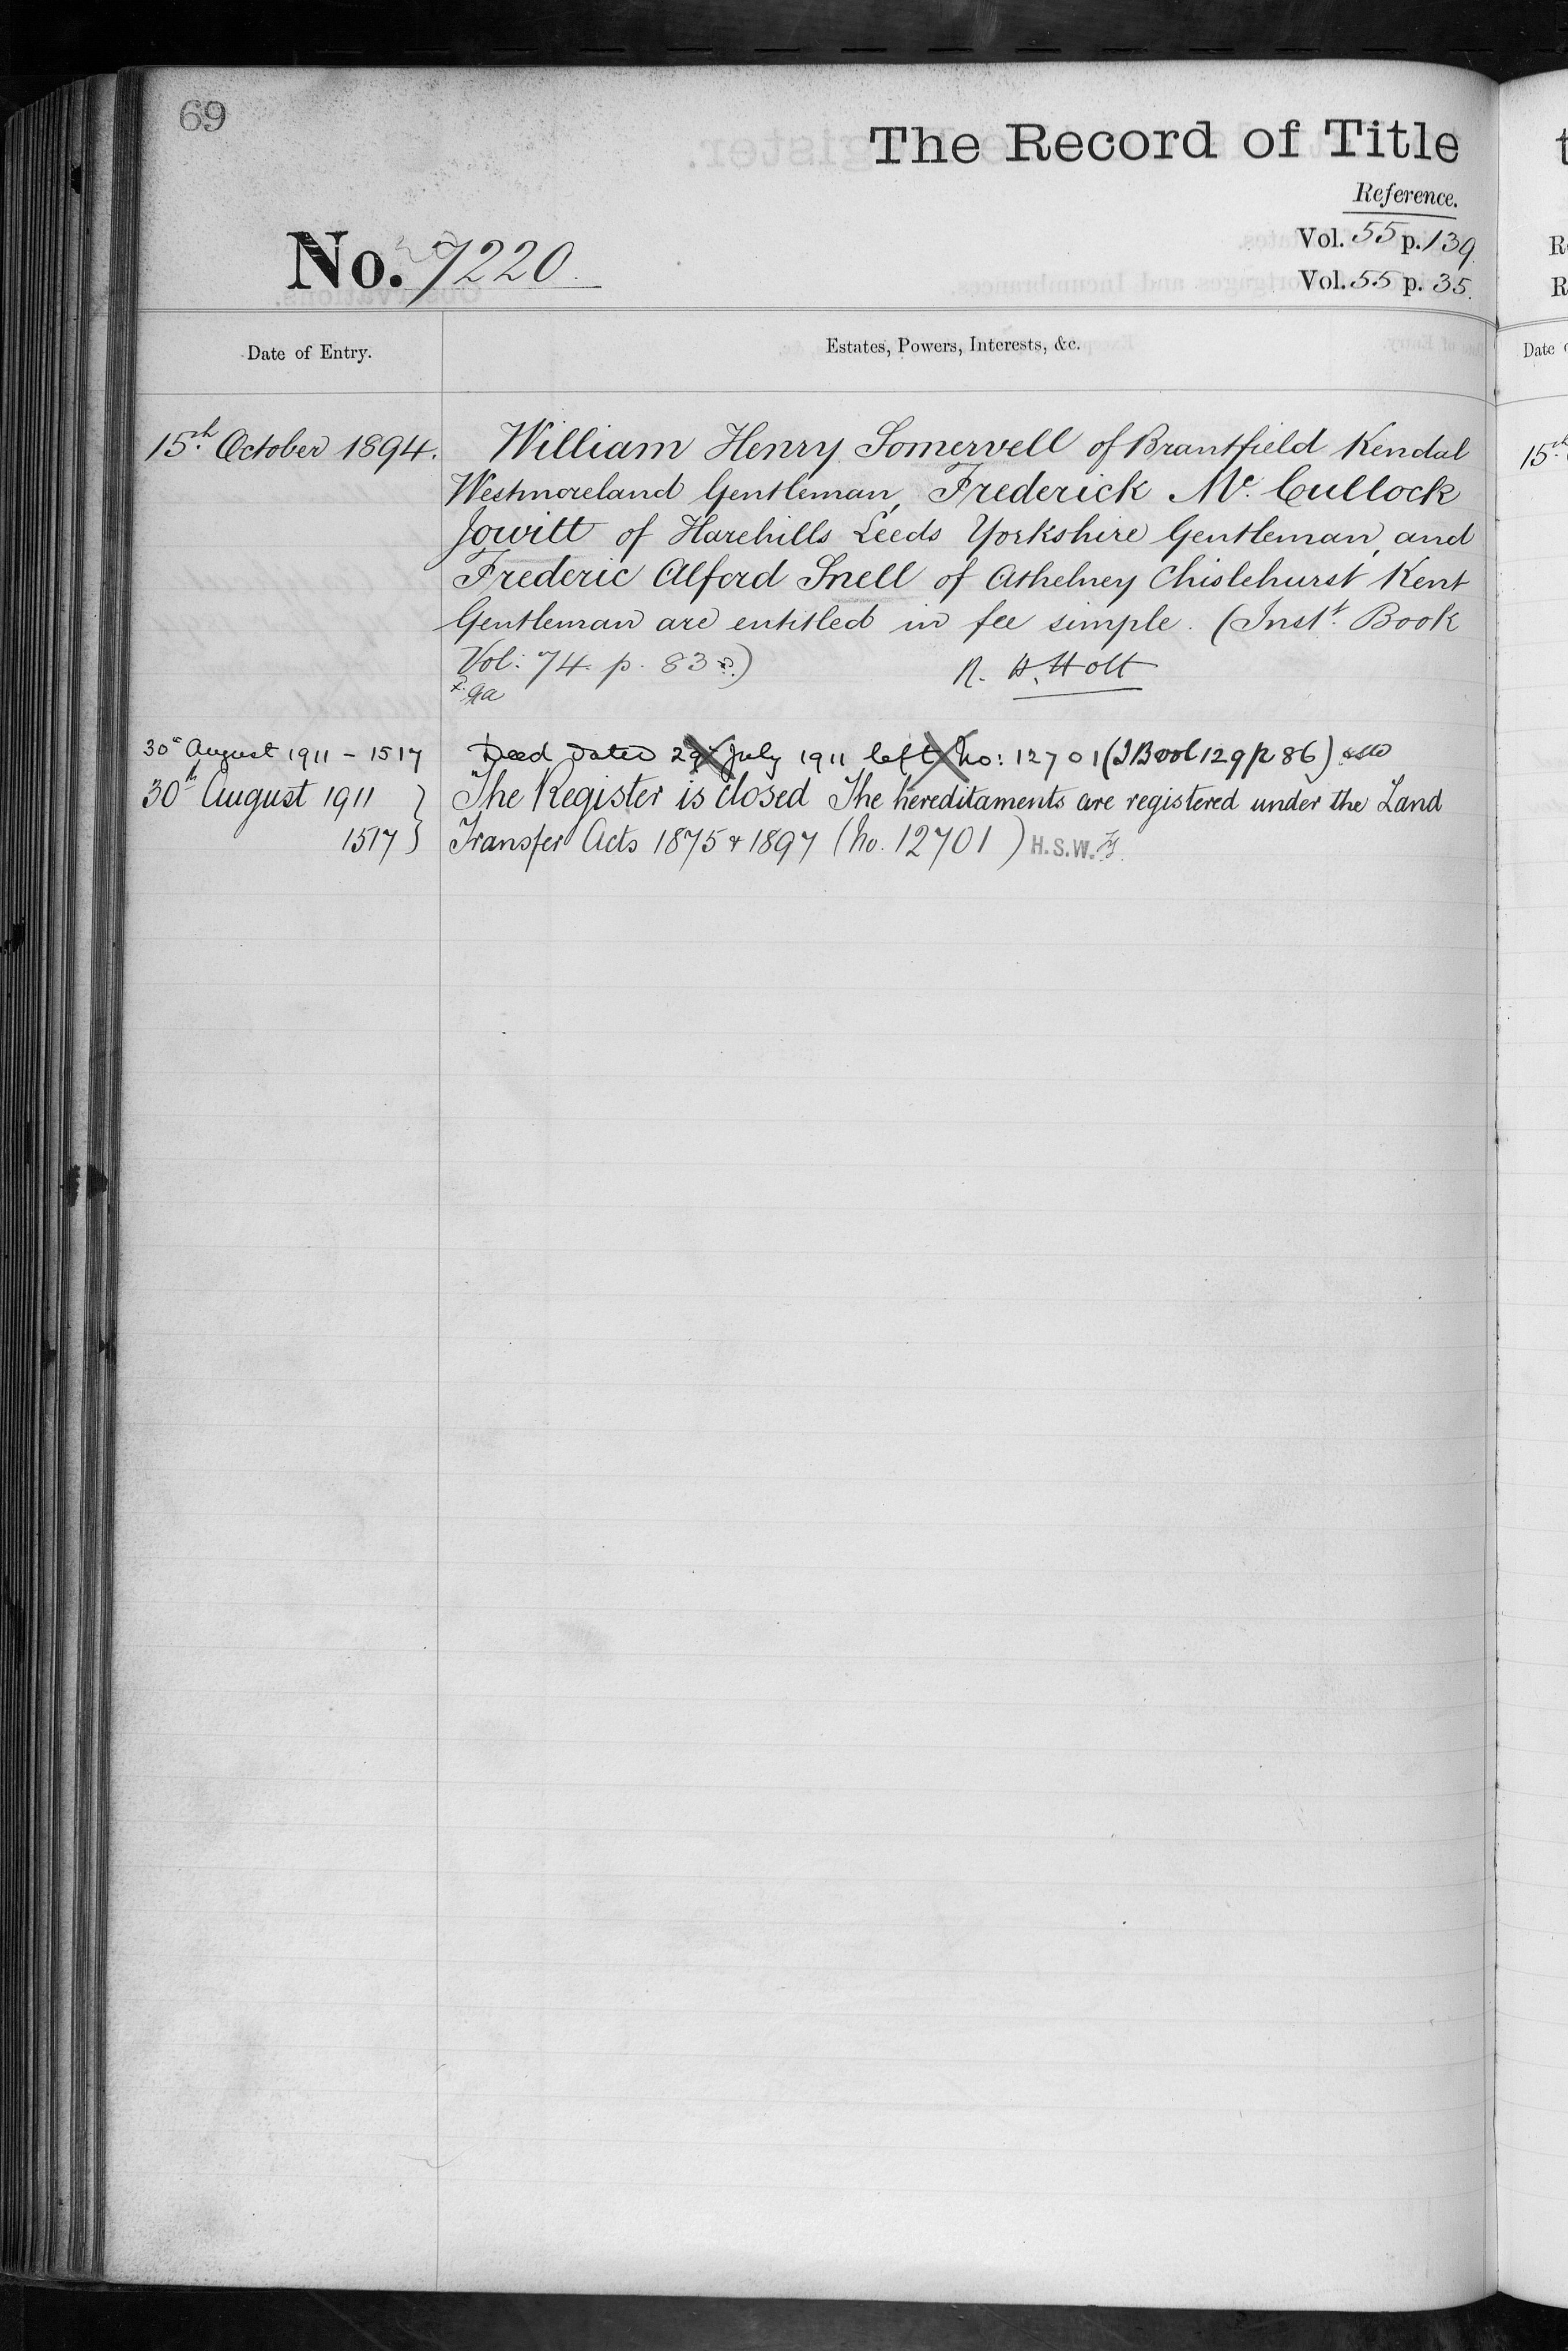 69
The Record of Title
Reference.
No. 7220.
Vol. 55 p. 139
Vol. 55 p. 35.
Date of Entry.
Estates, Powers, Interests, &c.
15th October 1894.
William Henry Somervell of Brantfield Kendal
Westmoreland Gentleman, Frederick Mc. Cullock
Jowitt of Harehills Leeds Yorkshire Gentleman, and
Frederic Alford Snell of Athelney Chislehurst Kent
Gentleman are entitled in fee simple. (Inst. Book
Vol: 74. p. 83.)
Holt
30th August 1911 – 1517
Deed dated 29 July 1911 left No: 12701 (I Book 129 p 86)
30th August 1911
1517
The Register is closed The hereditaments are registered under the Land
Transfer Acts 1875 & 1897 (No. 12701) H.S.W.
Date
15th